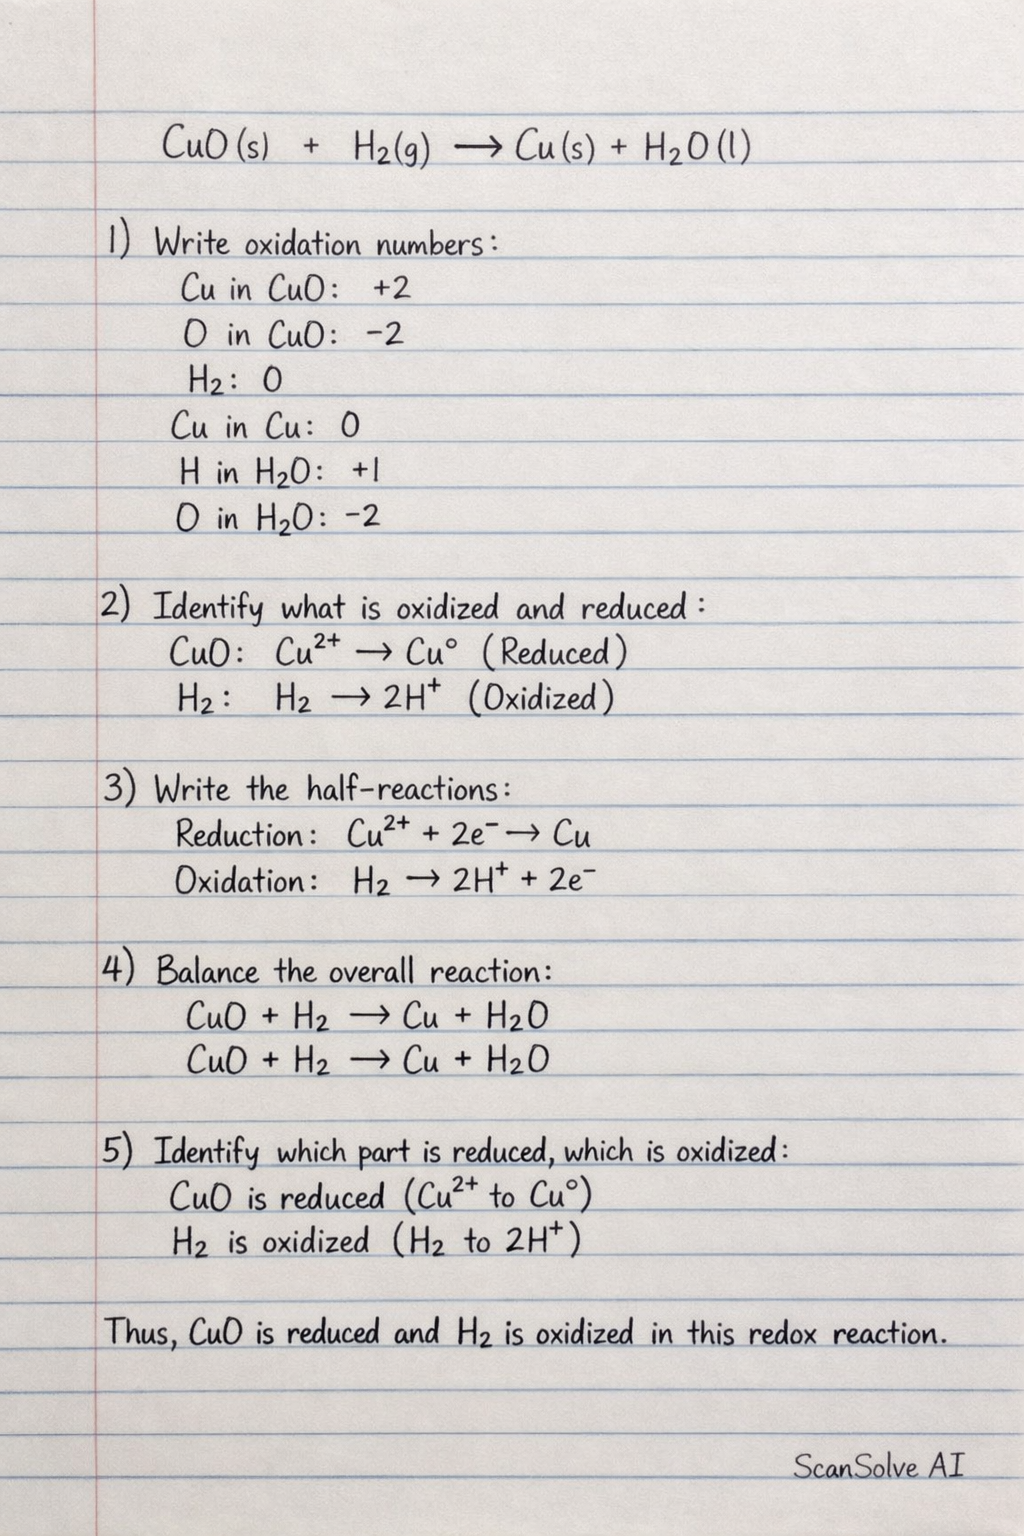 CuO(s) + H₂(g) → Cu(s) + H₂O(l)
1) Write oxidation numbers:
Cu in CuO: +2
O in CuO: -2
H₂: 0
Cu in Cu: 0
H in H₂O: +1
O in H₂O: -2
2) Identify what is oxidized and reduced:
CuO: Cu²⁺ → Cu° (Reduced)
H₂: H₂ → 2H⁺ (Oxidized)
3) Write the half-reactions:
Reduction: Cu²⁺ + 2e⁻ → Cu
Oxidation: H₂ → 2H⁺ + 2e⁻
4) Balance the overall reaction:
CuO + H₂ → Cu + H₂O
CuO + H₂ → Cu + H₂O
5) Identify which part is reduced, which is oxidized:
CuO is reduced (Cu²⁺ to Cu°)
H₂ is oxidized (H₂ to 2H⁺)
Thus, CuO is reduced and H₂ is oxidized in this redox reaction.
ScanSolve AI